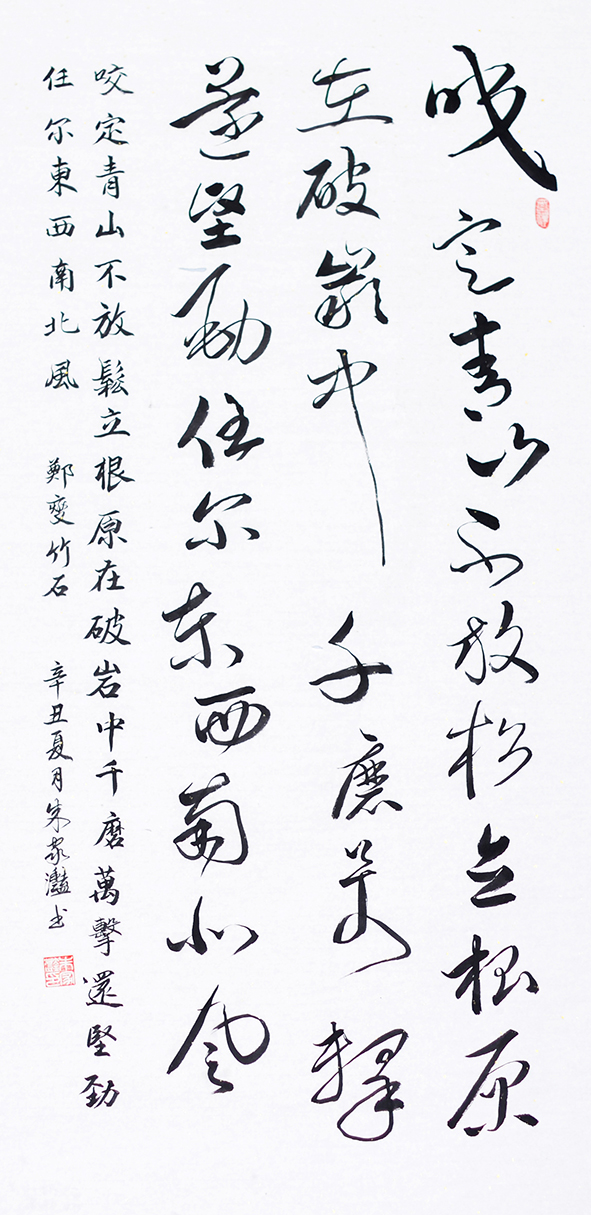 咬定青山不放松立根原
在破岩中千磨万击
还坚劲任尔东西南北风
咬定青山不放鬆立根原在破岩中千磨萬擊還堅勁
任尔東西南北風 鄭燮竹石 辛丑夏月朱家灩书